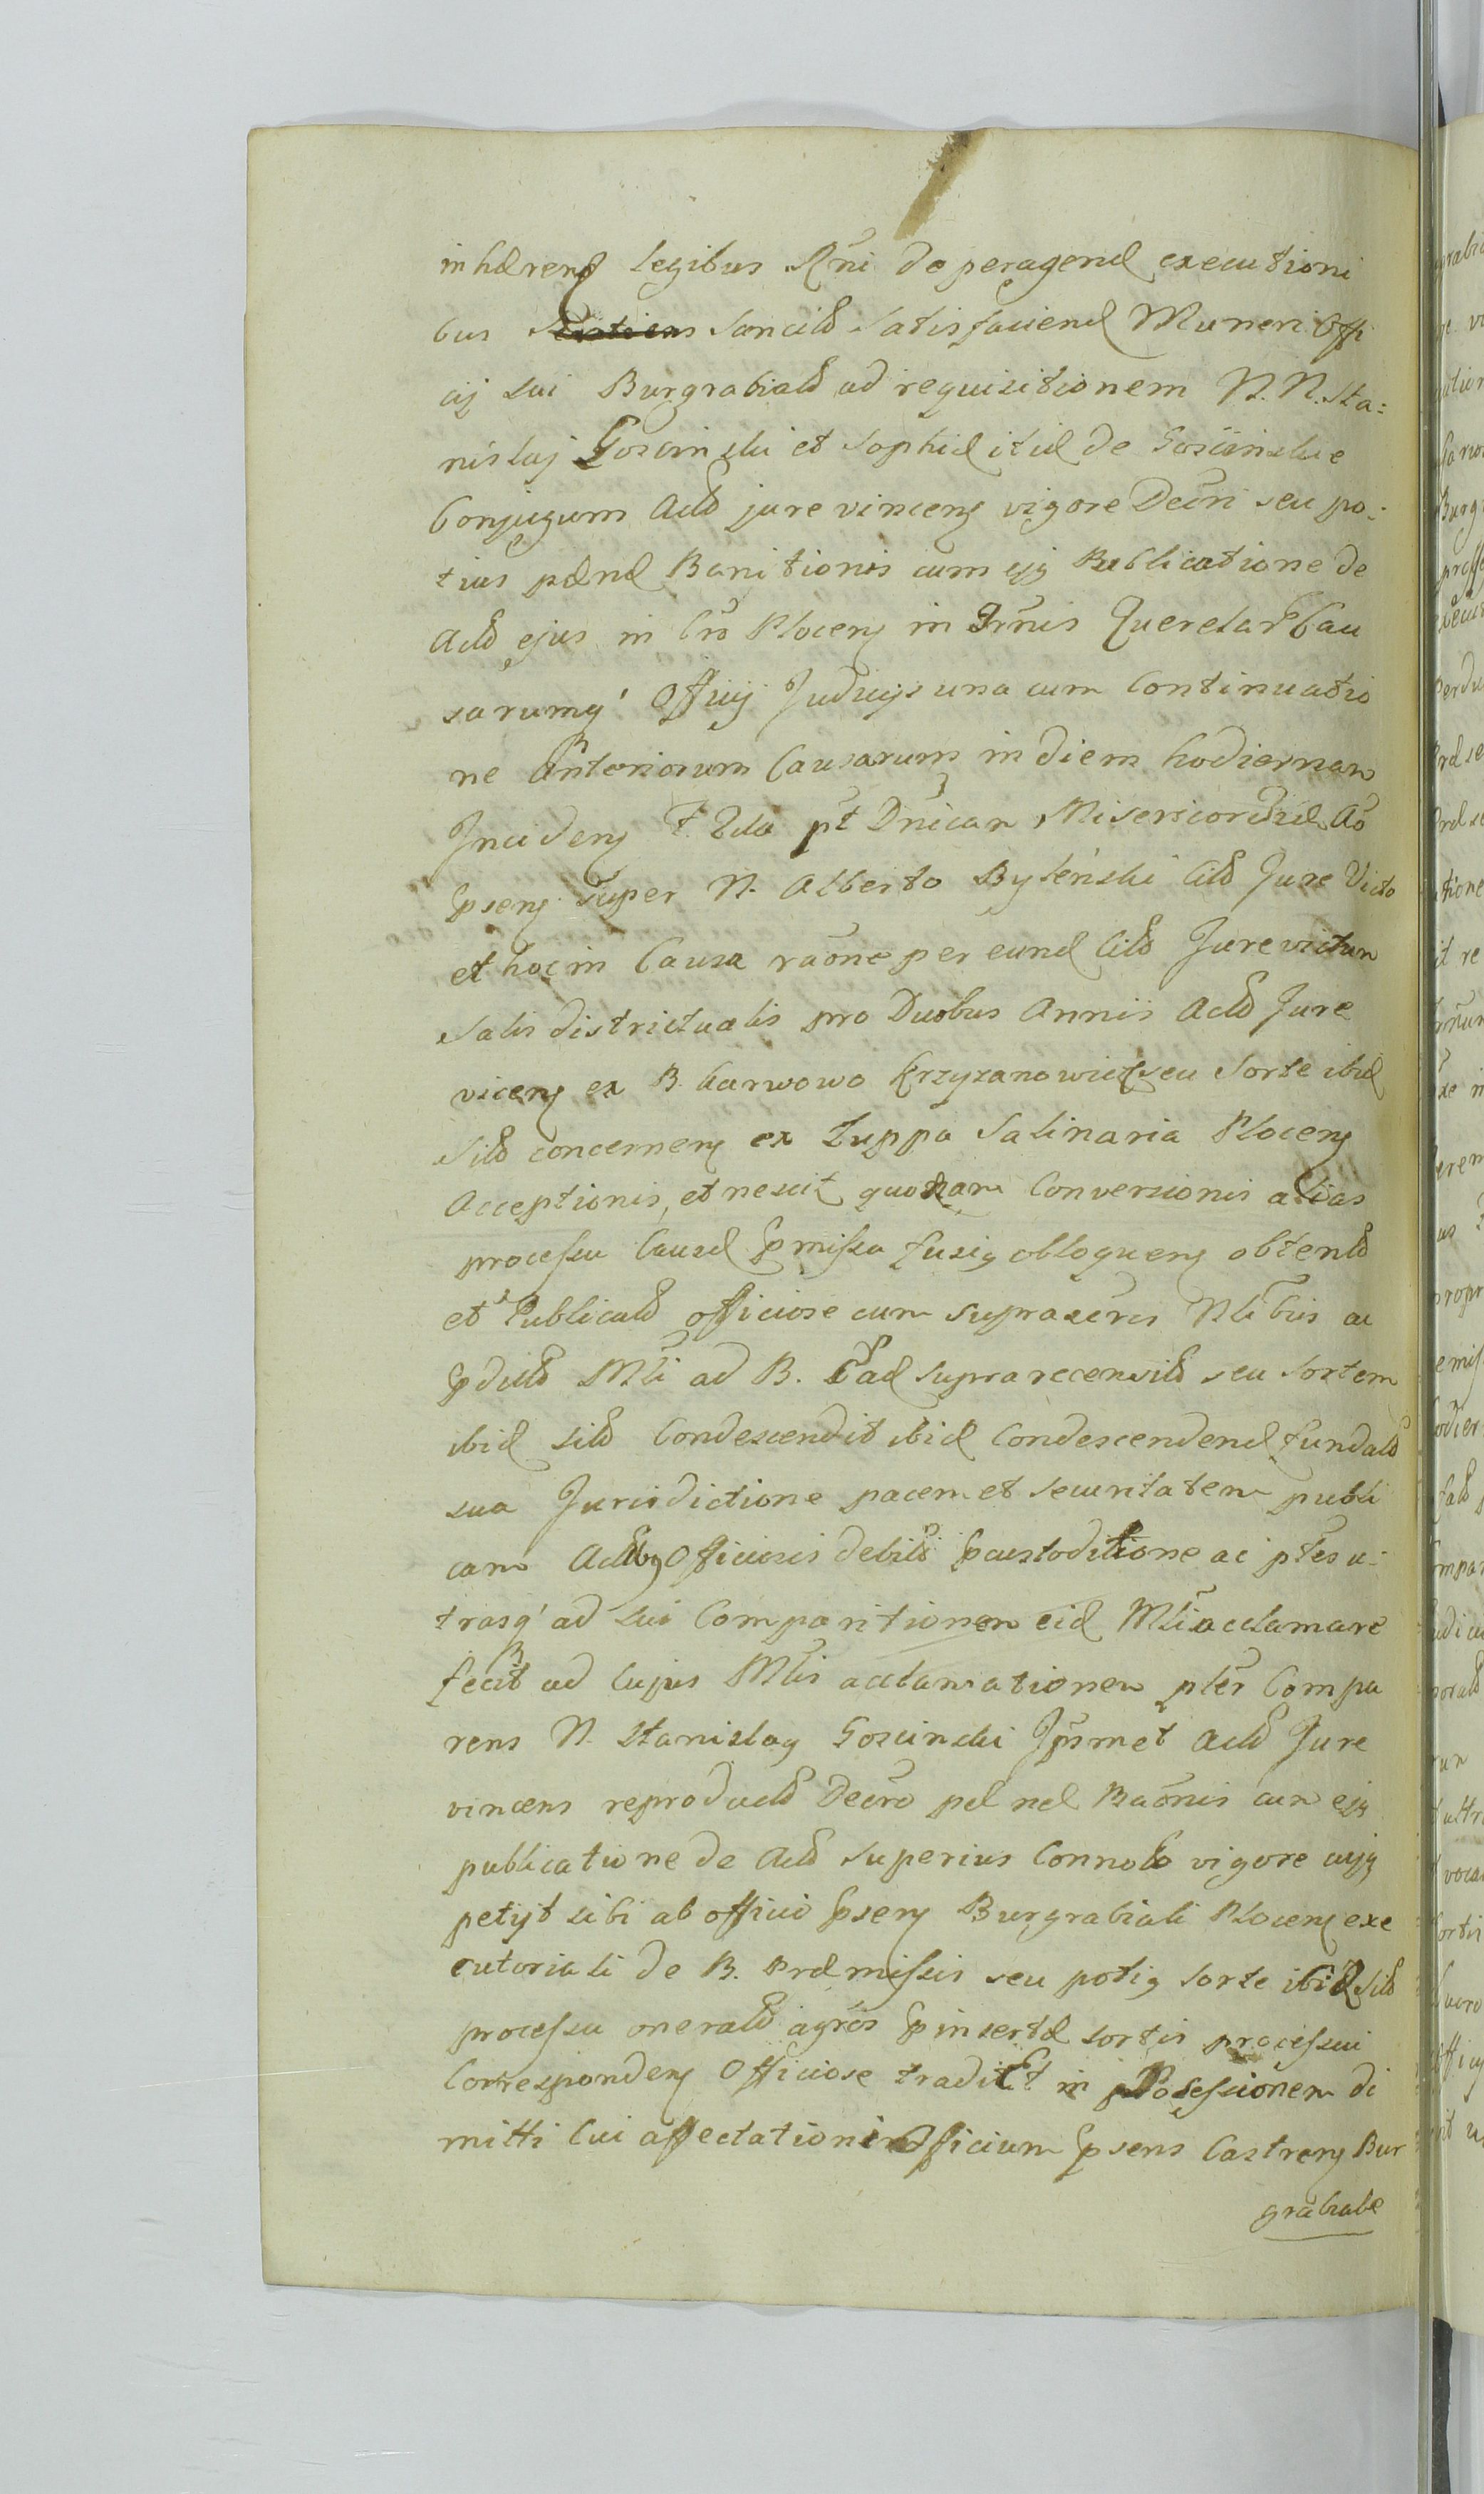 inhæren legibus Rni de peragend executioni
bus sancit satisfaciend Muneri Offi
cij sui Burgrabialis ad requisitionem N. N. Sta-
nislaj Goscinski et Sophiæ itid de Goscinskie
Conjugum Act jure vincen vigore Decri seu po-
tius pænæ Banitionis cum ejq Publicatione de
Act ejus in Cro Plocen in Trnis Querelar Cau
sarumq Officij Judicijs una cum Continuatio
ne Anteriorum Causarum in diem hodiernam
Inciden F. 2da pt Dnicam Misericordiæ Ao
Psen super N. Alberto Byleński Cit Jure Victo
et hoc in Causa raone per eund Cit Jure victum
Salis districtualis pro Duobus Annis Act Jure
vicen ex B. Karwowo Krzyzanowiect seu Sorte ibid
Sit concernen ex Zuppa Salinaria Plocen
Acceptionis, et nescit quonam Conversionis alias
processu Causæ Pmisso fusiq obloquen obtent
et Publicat officiose cum suprascris Nlibus ac
Pdict Mli ad B. ad suprarecensit seu Sortem
ibid sit Condescendit ibid Condescendend fundat
sua Jurisdictione pacem et securitatem publi
cam Actibq Officiosis debit Pcustoditione ac ptes u-
trasq ad sui Comparitionem eid Mli acclamare
fecit ad Cujus Mlis acclamationem pler Compa
rens N. Stanislaq Goscinski Ipsmet Act Jure
vincens reproducto Decro pænæ Baonis cum ejq
publicatione de Act superius Connoto vigore cujq
petijt sibi ab officio Psen Burgrabiali Plocen exe
cutoriali de B. Præmissis seu potiq Sorte ibid Sit
processu onerat agros Pinsertæ sortis processui
Corresponden Officiose tradi Et in Possessionem di
mitti Cui affectationi Officium Psens Castren Bur
grabiale